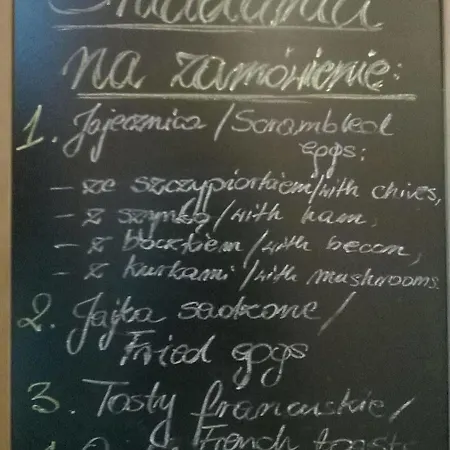 Śniadania
na zamówienie:
1. Jajecznica / Scrambled
eggs:
- ze szczypiorkiem/with chives,
- z szynką/with ham,
- z boczkiem/with becon,
- z kurkami/with mushrooms.
2. Jajka sadzone/
Fried eggs
3. Tosty francuskie/
French toasts